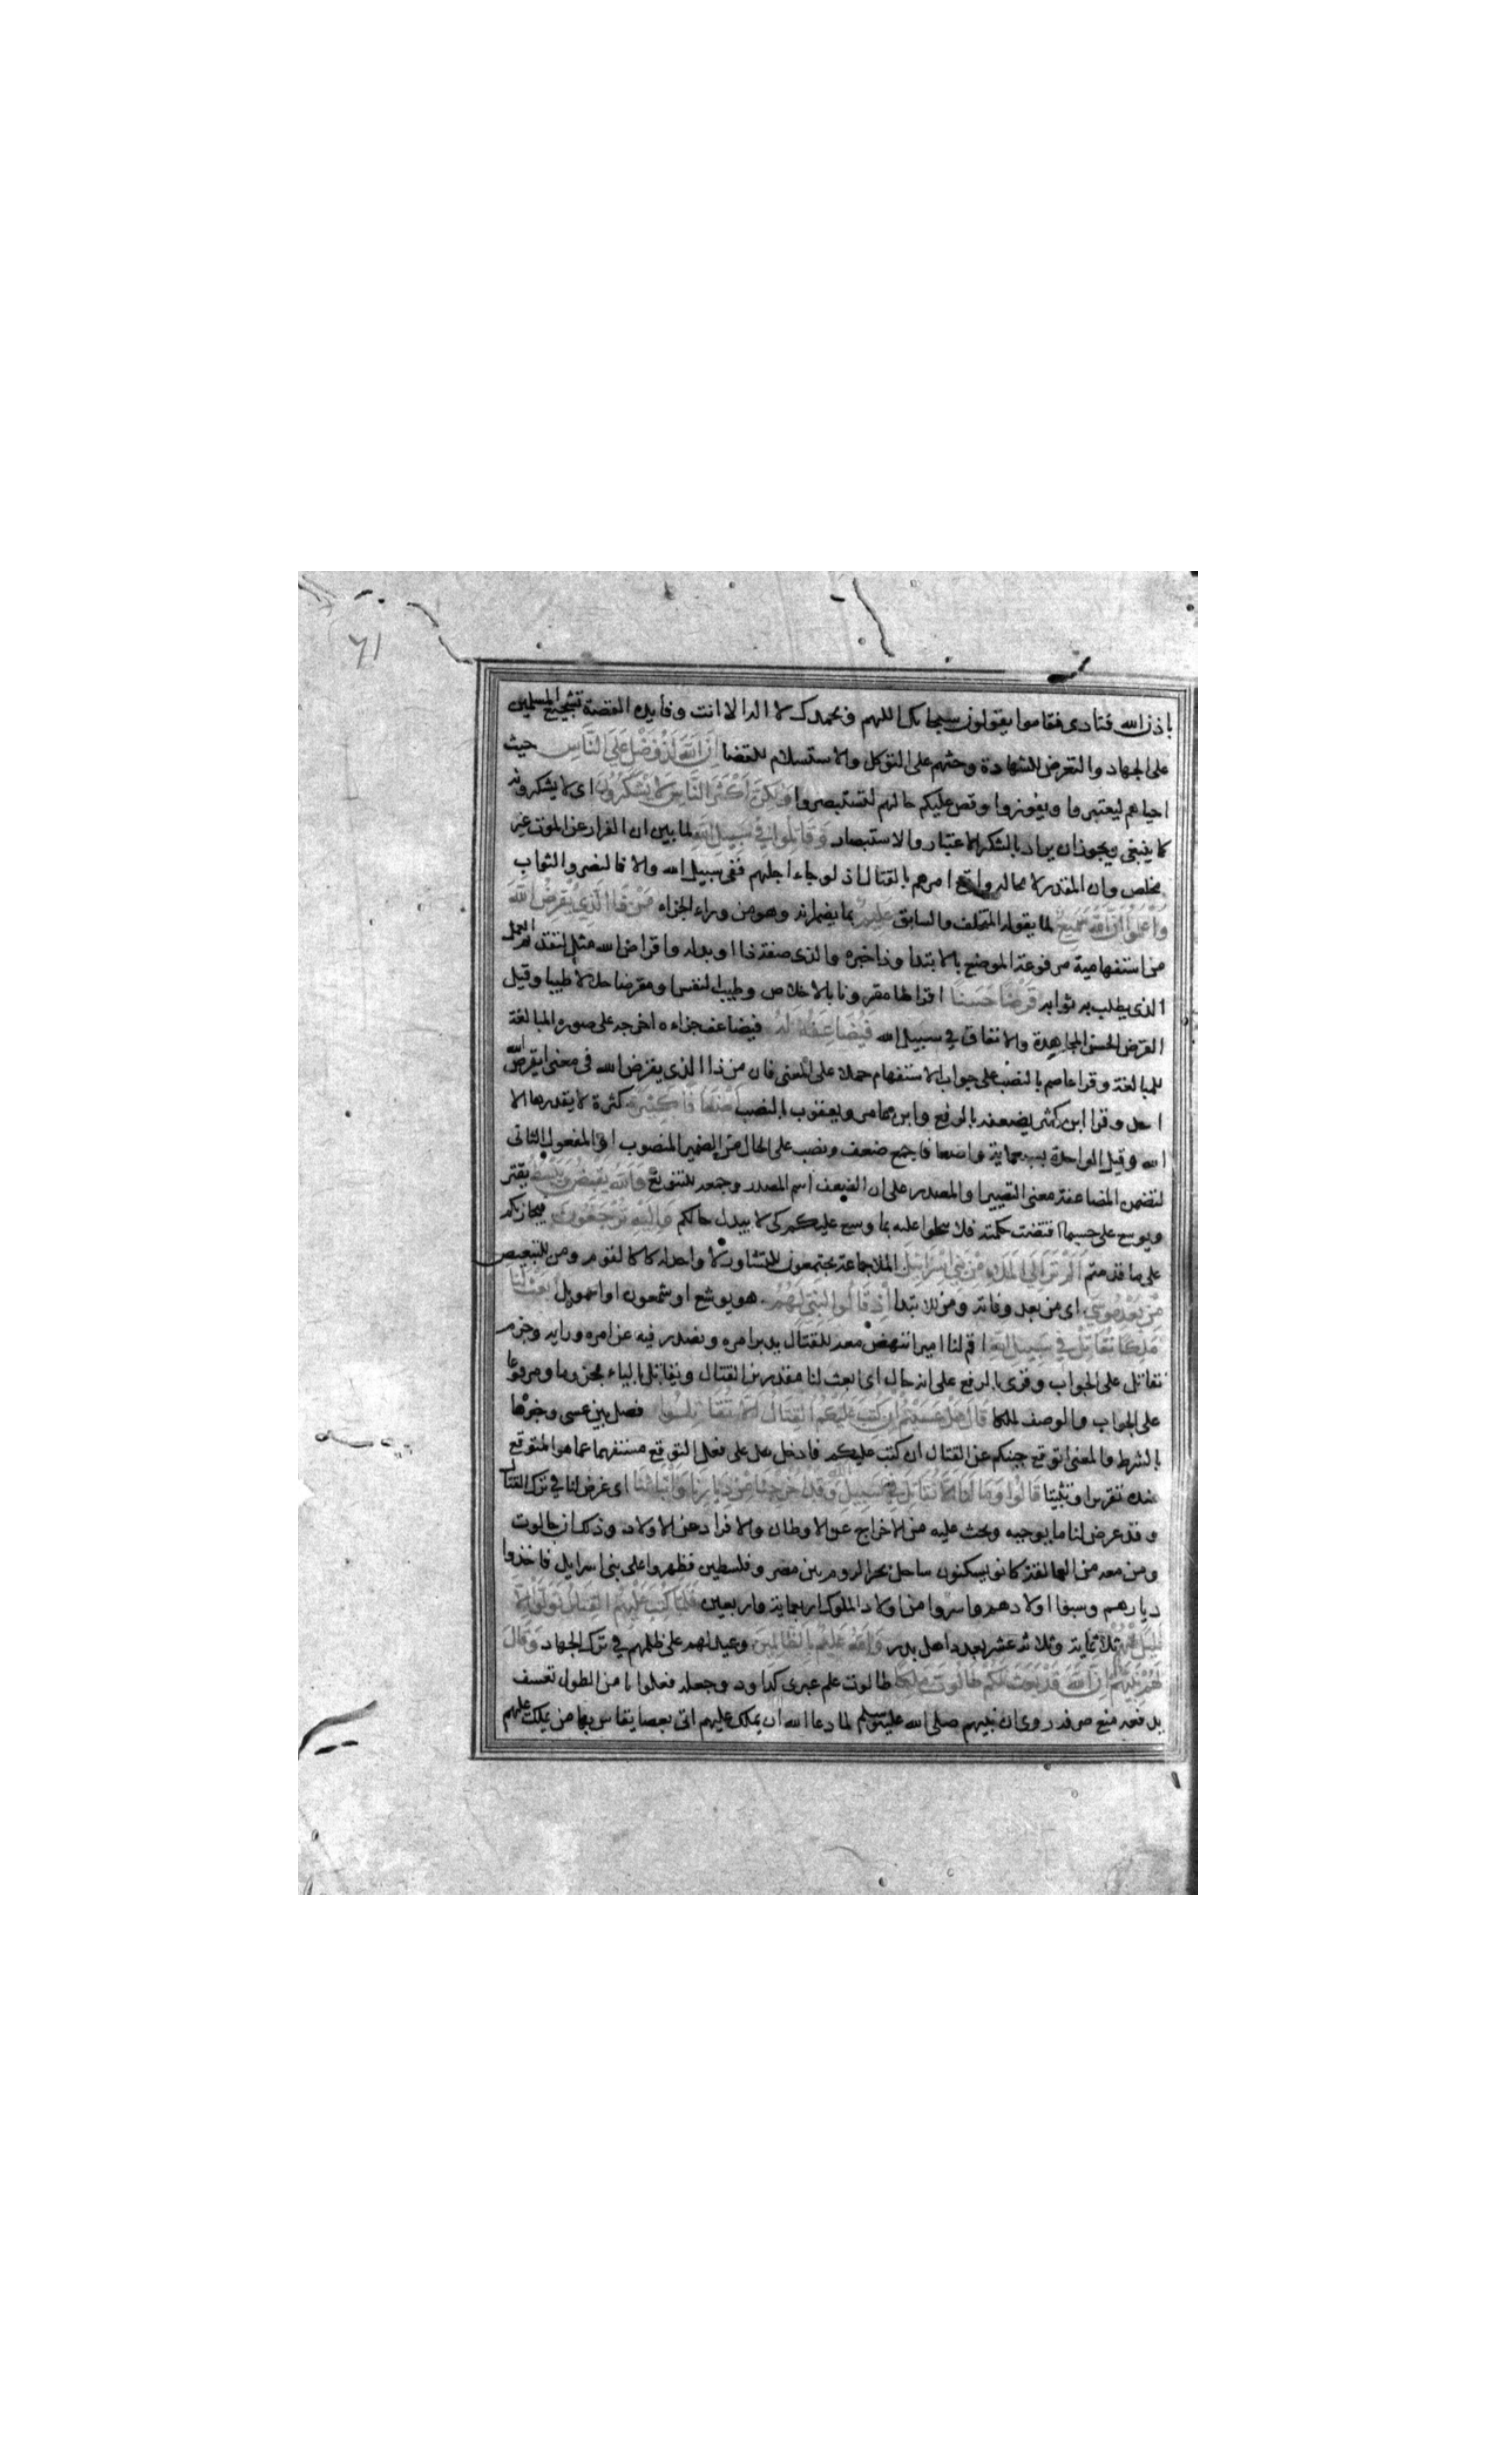 ٦١
باذن الله فنادى فقاموا يقولون سبحانك اللهم وبحمدك لا اله الا انت وفايده القصة تشجيع المسلمين
على الجهاد والتعرض للشهادة وحثهم على التوكل والاستسلام للقضا ان الله لذو فضل على الناس حيث
احياهم ليعتبروا ويفوزوا وقص عليكم حالهم لتستبصروا ولكن اكثر الناس لا يشكرون اى لا يشكرونه
كما ينبغى ويجوز ان يراد بالشكر الاعتبار والاستبصار وقاتلوا في سبيل الله لما بين ان الفرار عن الموت غير
مخلص وان المقدر لا محاله واقع امرهم بالقتال اذ لو جاء اجلهم ففى سبيل الله والا فالنصر والثواب
واعلموا ان الله سميع لما يقوله المتخلف والسابق عليم بما يضمرانه وهو من وراء الجزاء من ذا الذي يقرض الله
من استفهامية مرفوعة الموضع بالابتدا وذا خبره والذى صفة ذا او بدله واقراض الله مثل لتقديم العمل
الذى يطلب به ثوابه قرضا حسنا اقراضا مقرونا بالاخلاص وطيب النفس او مقرضا حلالا طيبا وقيل
القرض الحسن المجاهدة والانفاق في سبيل الله فيضاعفه له فيضاعف جزاءه اخرجه على صوره المبالغة
للمبالغة وقرا عاصم بالنصب على جواب الاستفهام حملا على المعنى فان من ذا الذى يقرض الله فى معنى ايقرض الله
احد وقرا ابن كثير يضعفه بالرفع وابن عامر ويعقوب بالنصب اضعافا كثيرة كثرة لا يقدرها الا
الله وقيل الواحدة بسبعماية واضعافا جمع ضعف ونصب على الحال من الضمير المنصوب او المفعول الثانى
لتضمن المضاعفة معنى التصيير او المصدر على ان الضعف اسم المصدر وجمعه للتنويع والله يقبض ويبسط يقتر
ويوسع على حسب ما اقتضت حكمته فلا تبخلوا عليه بما وسع عليكم كى لا يبدل حالكم واليه ترجعون فيجازيكم
على ما قدمتم الم تر الى الملاء من بني اسرائيل الملا جماعة يجتمعون للتشاور لا واحد له كالقوم ومن للتبعيض
من بعد موسى اى من بعد وفاته ومن للابتدا اذ قالوا لنبي لهم هو يوشع او شمعون او اشمويل ابعث لنا
ملكا نقاتل في سبيل الله اقم لنا اميرا ننهض معه للقتال يدبر امره ونصدر فيه عن امره ورايه وجزم
نقاتل على الجواب وقرى بالرفع على انه حال اى ابعث لنا مقدرين القتال ويقاتل بالياء مجزوما ومرفوعا
على الجواب والوصف لملكا قال هل عسيتم ان كتب عليكم القتال الا تقاتلوا فصل بين عسى وخبرها
بالشرط والمعنى اتوقع جبنكم عن القتال ان كتب عليكم فادخل هل على فعل التوقع مستفهما عما هو المتوقع
عنده تقريرا وتثبيتا قالوا وما لنا الا نقاتل في سبيل الله وقد اخرجنا من ديارنا وابنائنا اى غرض لنا في ترك القتال
وقد عرض لنا ما يوجبه ويحث عليه من الاخراج عن الاوطان والافراد عن الاولاد وذلك ان جالوت
ومن معه من العمالقة كانو يسكنون ساحل بحر الروم بين مصر وفلسطين فظهروا على بنى اسرايل فاخذوا
ديارهم وسبوا اولادهم واسروا من اولاد الملوك اربعماية واربعين فلما كتب عليهم القتال تولوا الا
قليلا منهم ثلاثماية وثلاثة عشر بعدد اهل بدر والله عليم بالظالمين وعيد لهم على ظلمهم في ترك الجهاد وقال
لهم نبيهم ان الله قد بعث لكم طالوت ملكا طالوت علم عبرى كداود وجعله فعلوتا من الطول تعسف
يدفعه منع صرفه روى ان نبيهم صلى الله عليه وسلم لما دعا الله ان يملك عليهم اتى بعصا يقاس بها من يملك عليهم